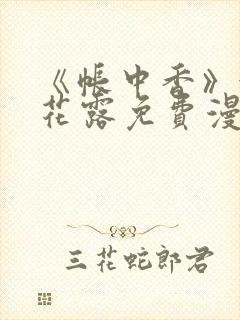 《帐中香》
花露免費漫
三花蛇郎君